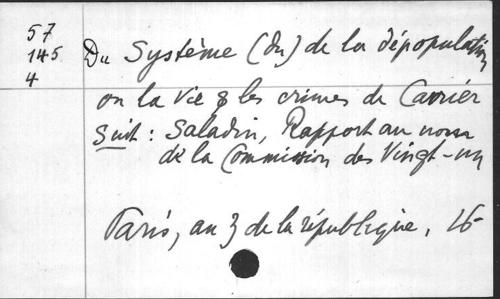 57
145
4
Du Système (du) de la dépopulation
ou la vie & les crimes de Carrier
Suit : Saladin, Rapport au nom
de la Commission des Vingt-un
Paris, an 3 de la république, 16-